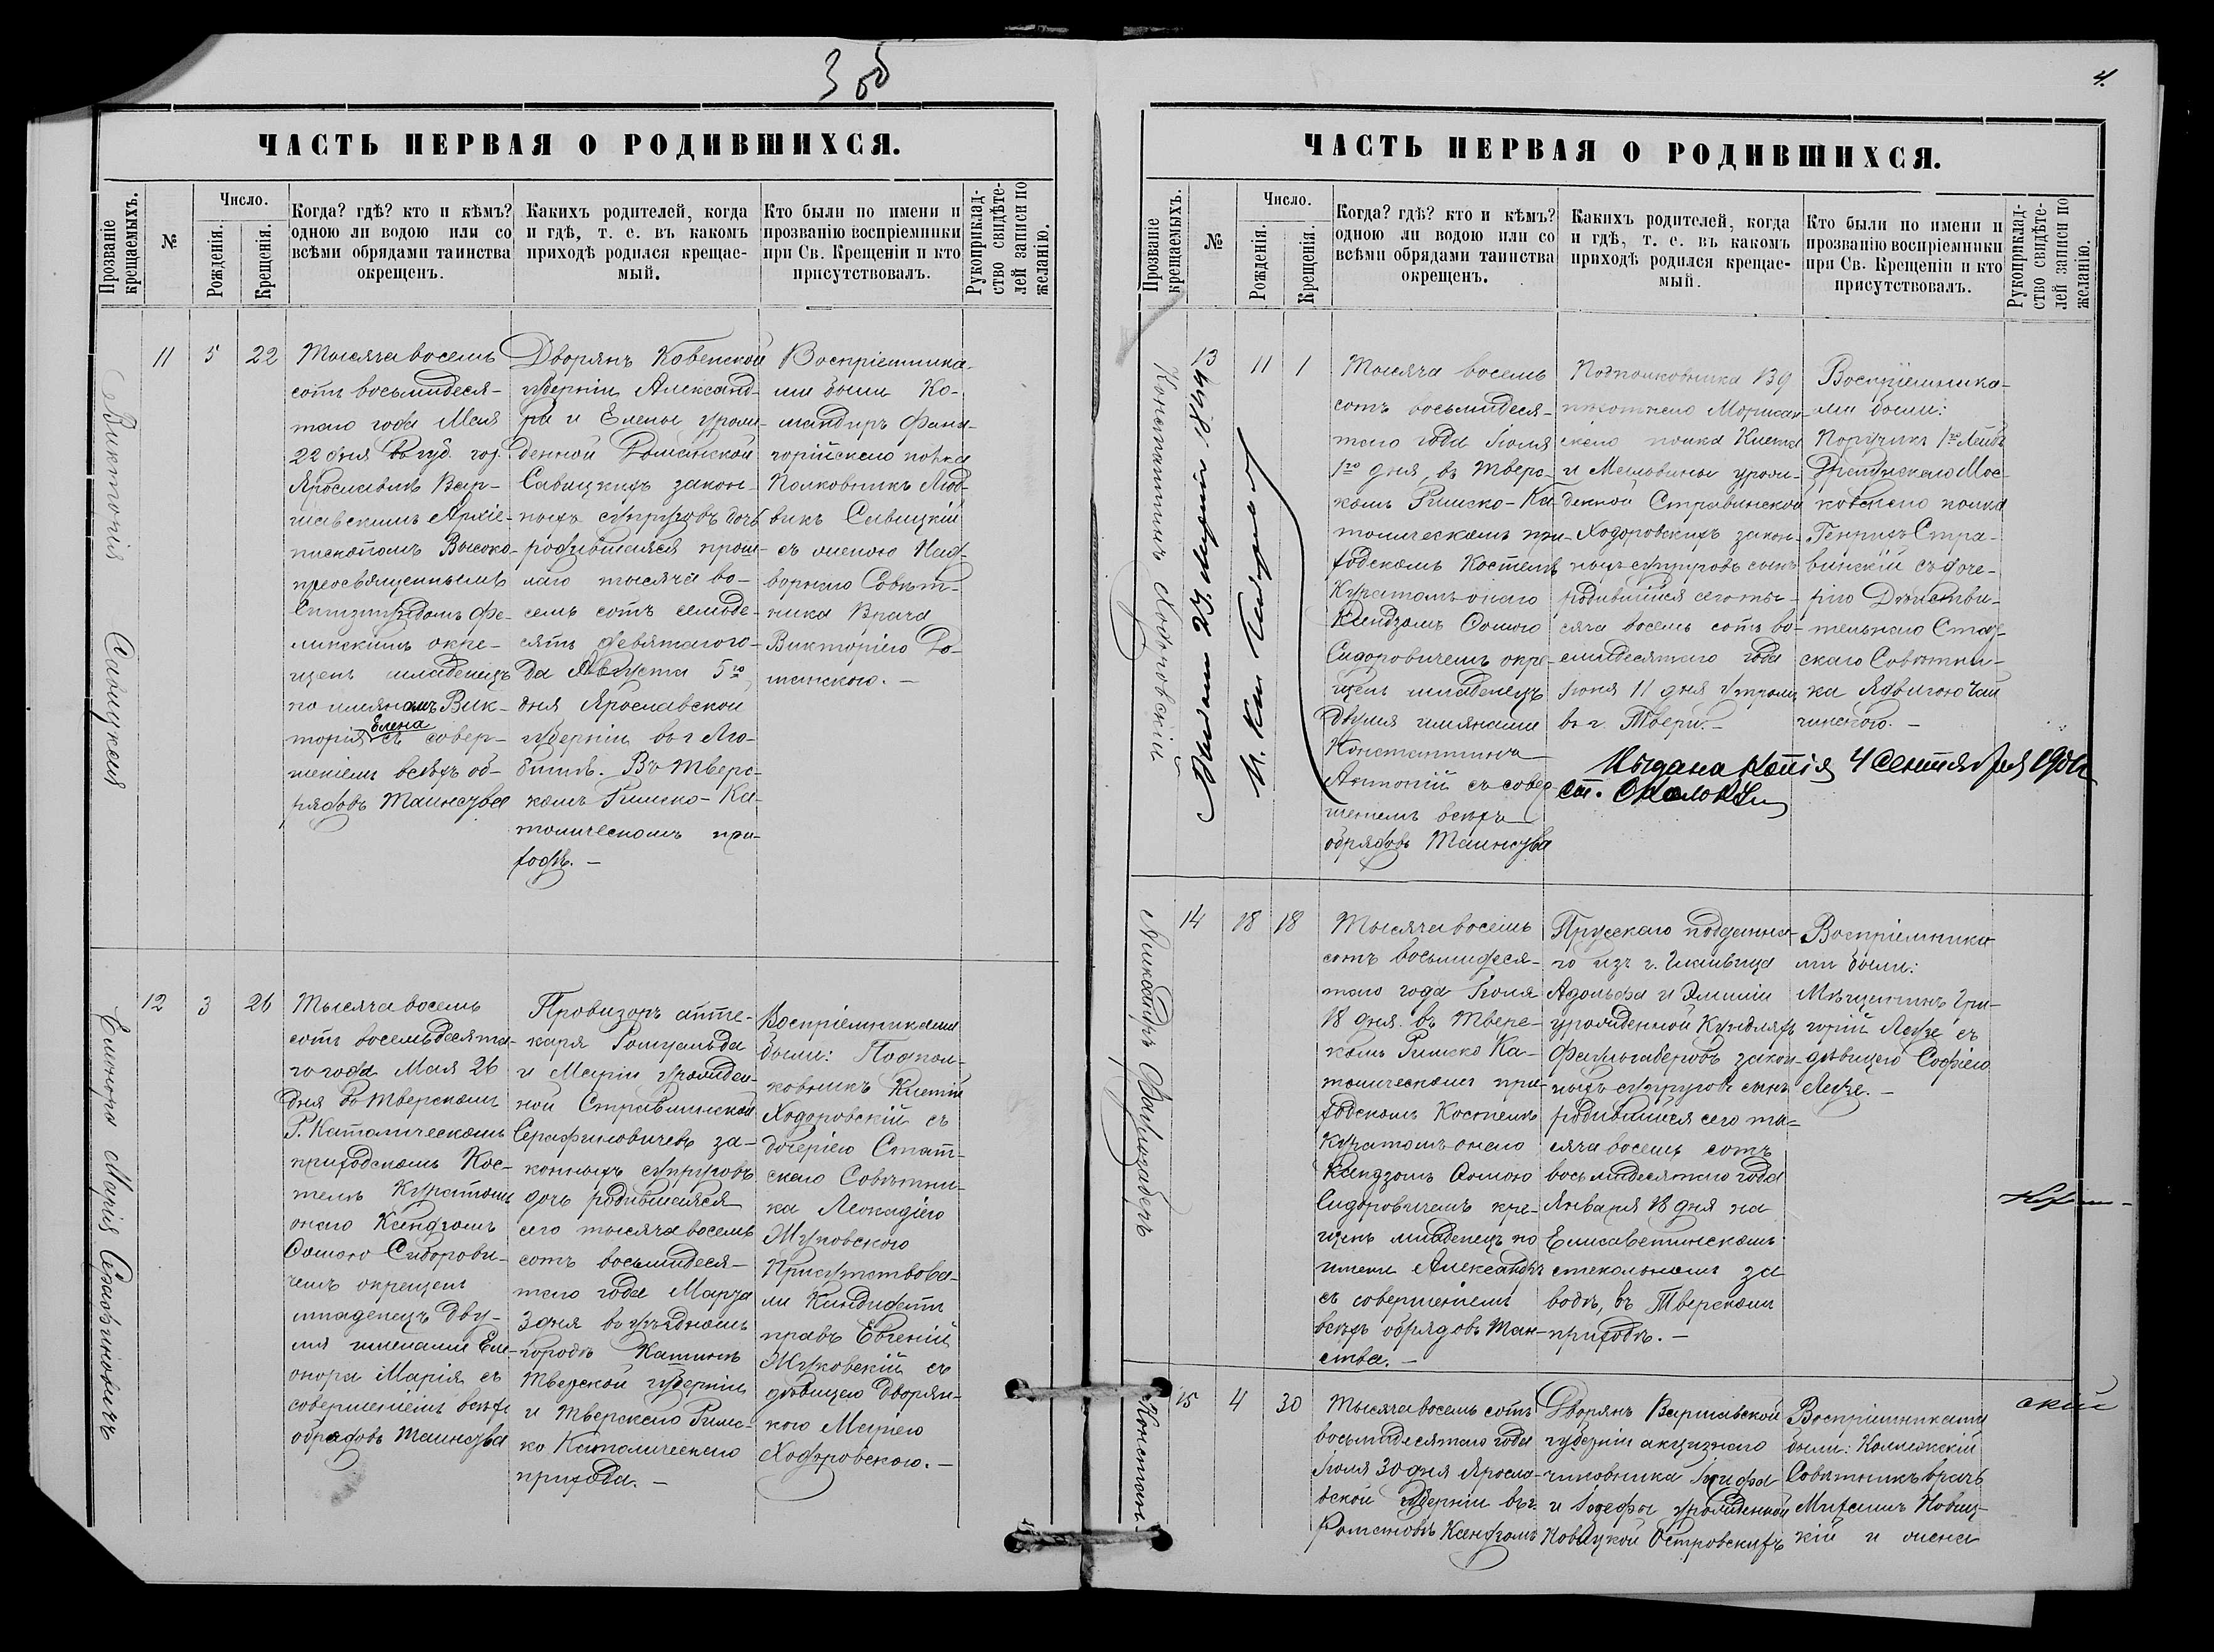 3 об
ЧАСТЬ ПЕРВАЯ О РОДИВШИХСЯ.
Прозваніе крещаемыхъ.
№
Число.
Рожденія.
Крещенія.
Когда? гдѣ? кто и кѣмъ?
одною ли водою или со
всѣми обрядами таинства
окрещенъ.
Какихъ родителей, когда
и гдѣ, т. е. въ какомъ
приходѣ родился крещае-
мый.
Кто были по имени и
прозванію воспріемники
при Св. Крещеніи и кто
присутствовалъ.
Рукоприклад-
ство свидѣте-
лей записи по
желанію.
Викторія Савицкая
11
5
22
Тысяча восемь
сотъ восьмидеся-
таго года Мая
22 дня въ губ. гор.
Ярославлѣ Вар-
шавскимъ Архіе-
пископомъ Высоко-
преосвященнымъ
Фе-
линскимъ окре-
щенъ младенецъ
по имянамъ Вик-
торія Елена съ совер-
шеніемъ всѣхъ об-
рядовъ Таинства
Дворянъ Ковенской
губерніи Александ-
ра и Елены урож-
денной Романской
Савицкихъ закон-
ныхъ супруговъ дочь
родившаяся прош-
лаго тысяча во-
семь сотъ семьде-
сятъ девятаго го-
да Августа 5го
дня Ярославской
губерніи въ г. Лю-
бимѣ. Въ Твер-
скомъ Римско-Ка-
толическомъ при-
ходѣ. —
Воспріемника-
ми были Ко-
мандиръ Фана-
горійскаго полка
Полковникъ Люд-
викъ Савицкій
съ женою Над-
ворнаго Совѣт-
ника Врача
Викторіею Ро-
манскою. —
Елеонора Марія Серафиновичъ
12
3
26
Тысяча восемь
сотъ восемьдесята-
го года Мая 26
дня въ Тверскомъ
Р. Католическомъ
приходскомъ Кос-
телѣ Куратомъ
онаго Ксендзомъ
Ѳомою Сидорови-
чемъ окрещенъ
младенецъ дву-
мя именами Еле-
онора Марія съ
совершеніемъ всѣхъ
обрядовъ Таинства
Провизора апте-
каря Ромуальда
и Маріи урожден-
ной Стравинской
Серафиновичевъ за-
конныхъ супруговъ
дочь родившаяся
сего тысяча восемь
сотъ восьмидеся-
таго года Марта
3 дня въ уѣздномъ
городѣ Кашинѣ
Тверской губерніи
и Тверскаго Римс-
ко Католическаго
прихода. —
Воспріемниками
были: Подпол-
ковникъ
Ходоровскій съ
дочеріею Стат-
скаго Совѣтни-
ка Леокадіею
Жуковскою
Присутствова-
ли Кандидатъ
правъ Евгеній
Жуковскій съ
дѣвицею дворян-
кою Маріею
Ходоровскою. —
4.
ЧАСТЬ ПЕРВАЯ О РОДИВШИХСЯ.
Прозваніе крещаемыхъ.
№
Число.
Рожденія.
Крещенія.
Когда? гдѣ? кто и кѣмъ?
одною ли водою или со
всѣми обрядами таинства
окрещенъ.
Какихъ родителей, когда
и гдѣ, т. е. въ какомъ
приходѣ родился крещае-
мый.
Кто были по имени и
прозванію воспріемники
при Св. Крещеніи и кто
присутствовалъ.
Рукоприклад-
ство свидѣте-
лей записи по
желанію.
Константинъ Ходоровскій
13
11
1
Тысяча восемь
сотъ восьмидеся-
таго года Іюля
1го дня, въ Тверс-
комъ Римско-Ка-
толическомъ при-
ходскомъ Костелѣ
Куратомъ онаго
Ксендзомъ Ѳомою
Сидоровичемъ окре-
щенъ младенецъ
двумя имянами
Константинъ
Антоній съ совер-
шеніемъ всѣхъ
обрядовъ Таинства
Подполковника 139
пѣхотнаго Моршан-
скаго полка
и Мальвины урож-
денной Стравинской
Ходоровскихъ закон-
ныхъ супруговъ сынъ
родившійся сего ты-
сяча восемь сотъ во-
семидесятаго года
Іюня 11 дня утромъ
въ г. Твери. —
Воспріемника-
ми были:
Поручикъ 1го Лейбъ
Драгунскаго Мос-
ковскаго полка
Генрихъ Стра-
винскій съ доче-
рію Дѣйстви-
тельнаго Стат-
скаго Совѣтни-
ка Ядвигою Чай
чинскою. —
Выдана копія 4 Сентября
Александръ
14
18
18
Тысяча восемь
сотъ восьмидеся-
таго года Іюля
18 дня въ Тверс-
комъ Римско Ка-
толическомъ при-
ходскомъ Костелѣ
Куратомъ онаго
Ксендзомъ Ѳомою
Сидоровичемъ кре-
щенъ младенецъ по
имени Александръ
съ совершеніемъ
всѣхъ обрядовъ Таин-
ства. —
Прусскаго подданна-
го изъ г.
Адольфа и Эмиліи
урожденной
закон-
ныхъ супруговъ сынъ
родившійся сего ты-
сяча восемь сотъ
восьмидесятаго года
Января 18 дня на
Елисаветинскомъ
стекольномъ за
водѣ, въ Тверскомъ
приходѣ. —
Воспріемника
ми были:
Мѣщанинъ Гри-
горій съ
дѣвицею Софіею
Константи-
15
4
30
Тысяча восемь сотъ
восьмидесятаго года
Іюля 30 дня Яросла-
вской губерніи въ г.
Романовѣ Ксендзомъ
Дворянъ Варшавской
губерніи акцизнаго
чиновника Іосифа
и Іозефы урожденной
Новицкой Островскихъ
Воспріемниками
были: Коллежскій
Совѣтникъ врачъ
Михаилъ Новиц-
кій и жена
скій